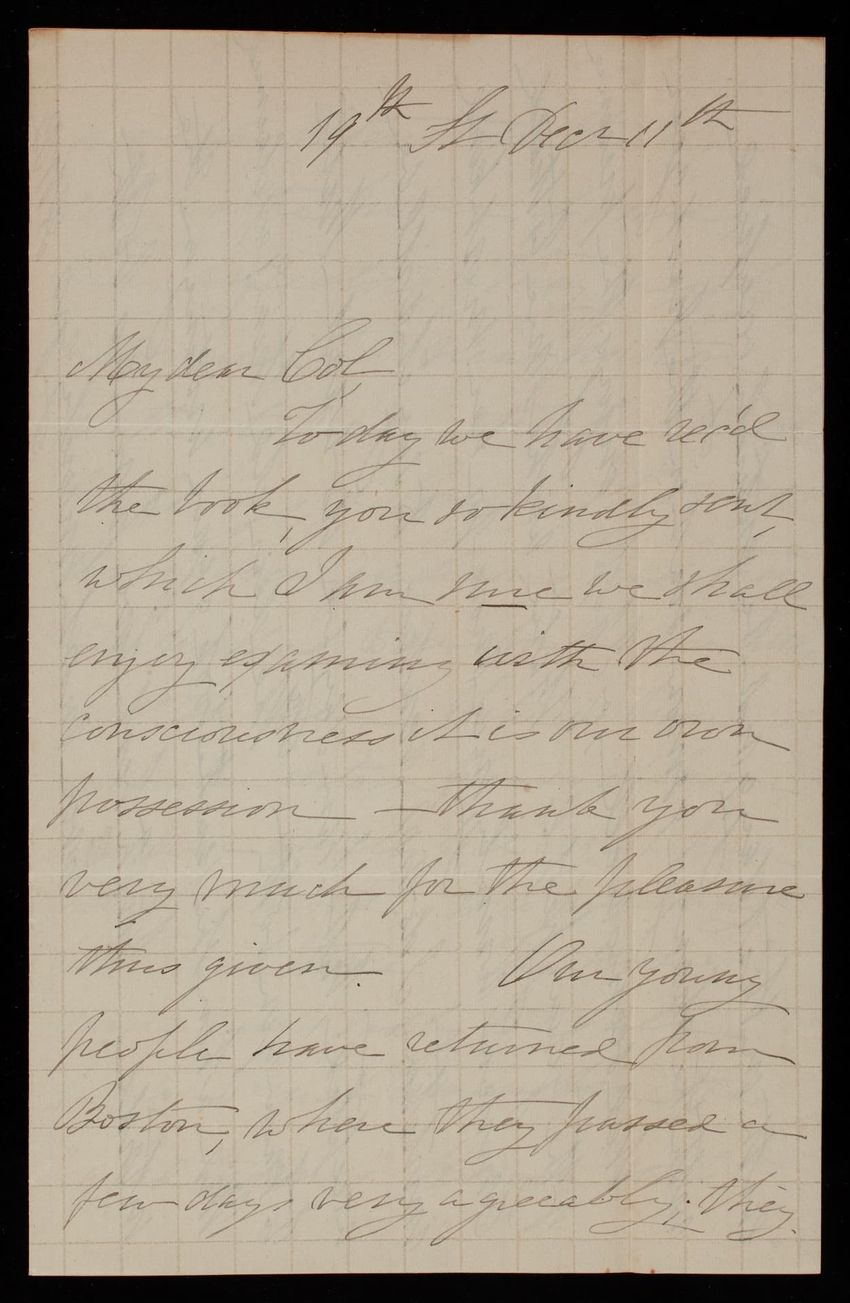 19th St Decr 11th
My dear Col,
Today we have rec'd
the book, you so kindly sent,
which I am sure we shall
enjoy examining with the
consciousness it is our own
possession — thank you
very much for the pleasure
thus given. Our young
people have returned from
Boston, where they passed a
few days very agreeably; they